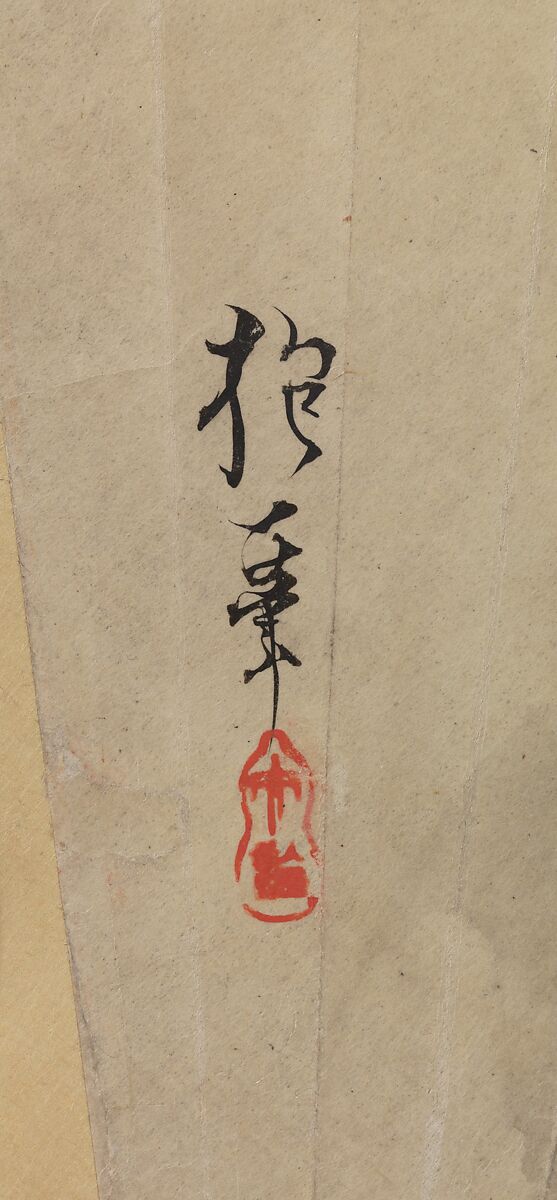 抱一筆